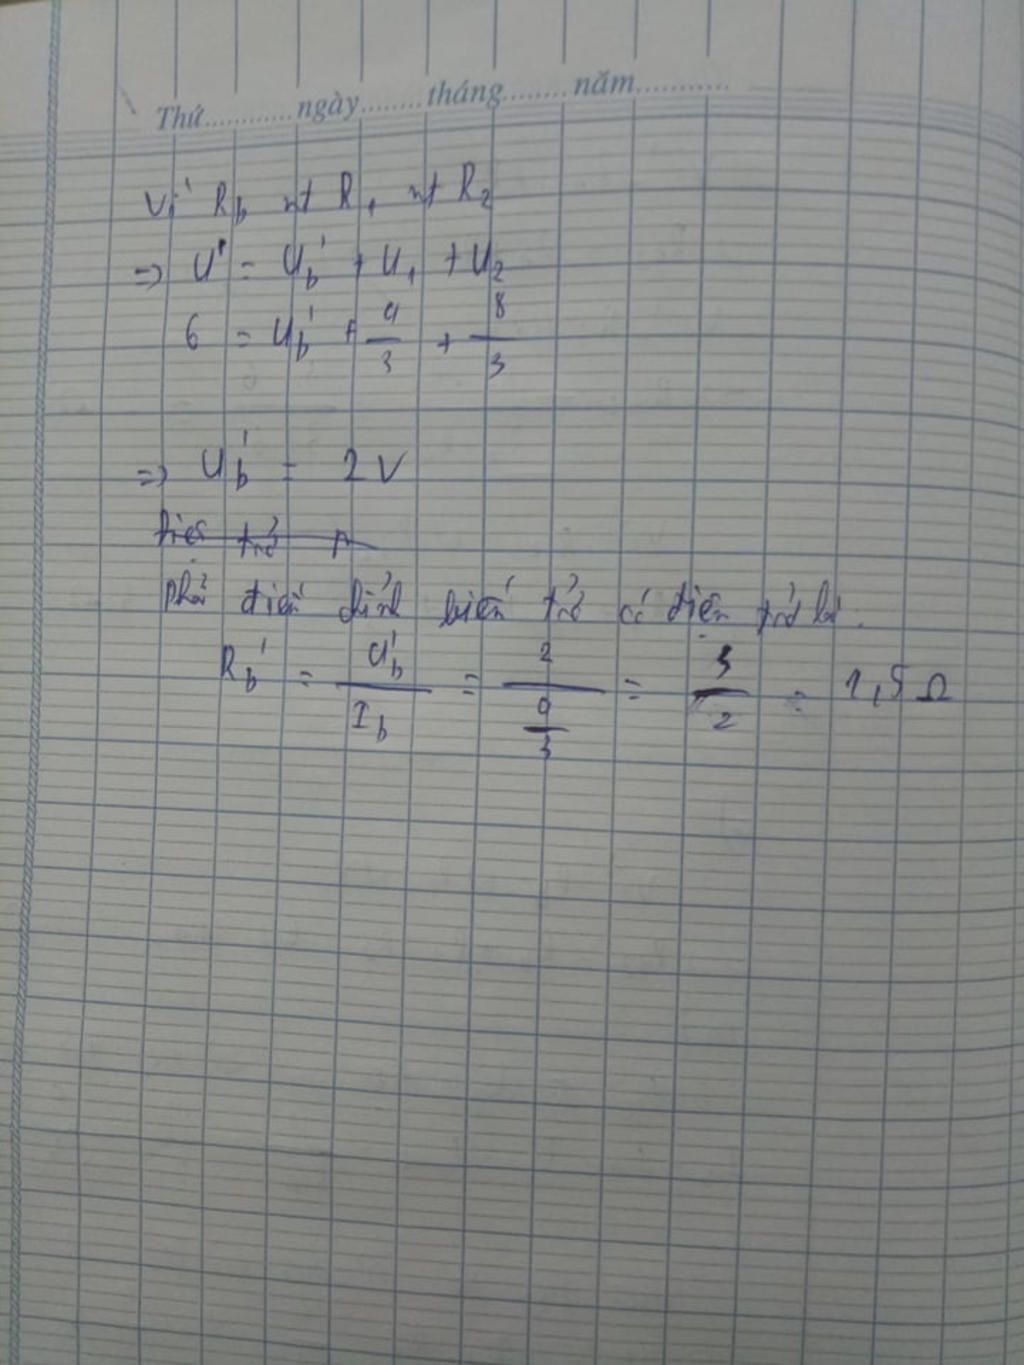 Thứ............ngày........tháng........năm............
Vì Rb nt R1 nt R2
=> U' = Ub' + U1 + U2
6 = Ub' + 4/3 + 8/3
=> Ub' = 2 V
điện trở
phải điều chỉnh biến trở có điện trở là.
Rb' = Ub'/Ib = 2/(4/3) = 3/2 = 1,5 Ω